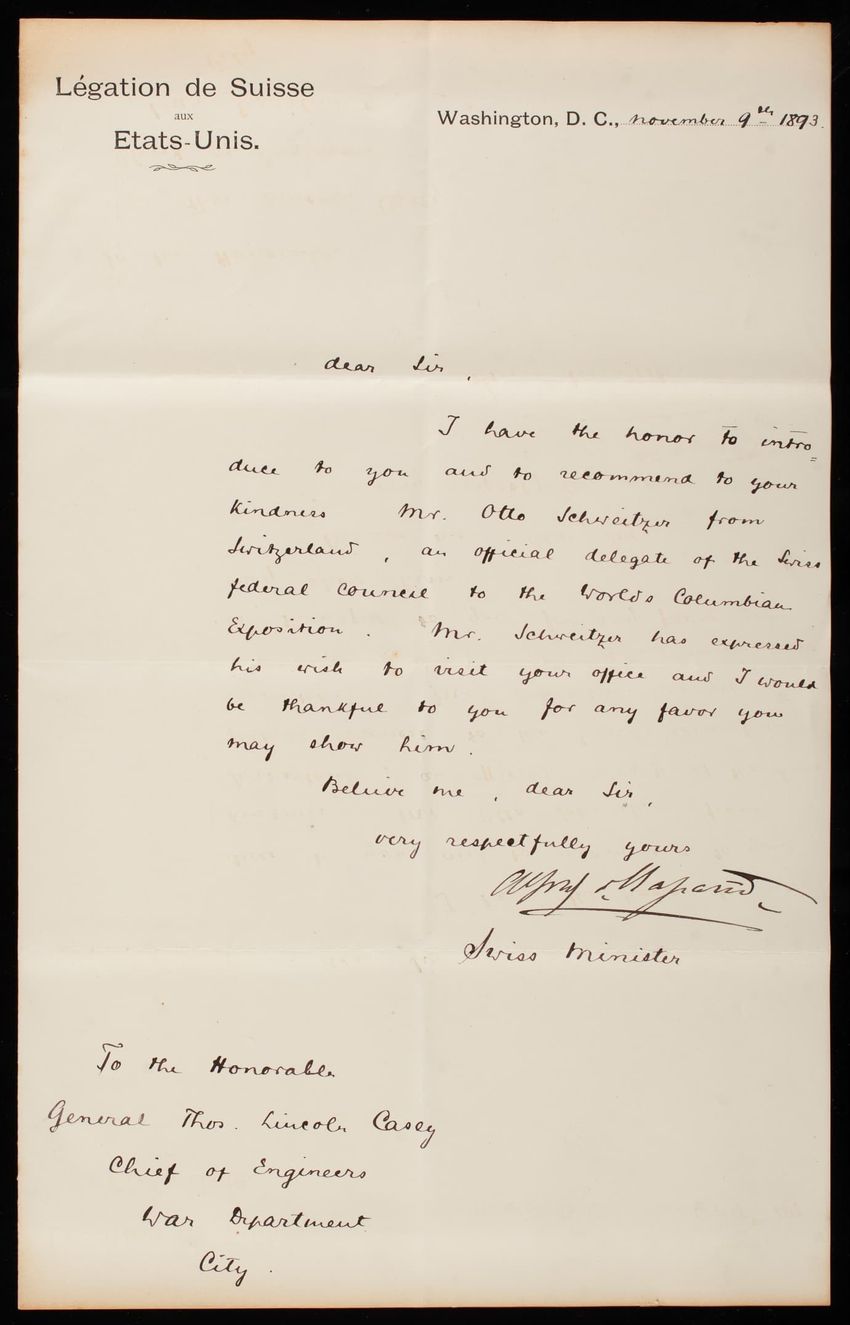 Légation de Suisse
aux
Etats-Unis.
Washington, D. C., november 9th 1893.
dear Sir,
I have the honor to intro=
duce to you and to recommend to your
kindness Mr. Otto Schweitzer from
Switzerland, an official delegate of the Swiss
federal Council to the Worlds Columbian
Exposition. Mr. Schweitzer has expressed
his wish to visit your office and I would
be thankful to you for any favor you
may show him.
Believe me, dear Sir,
very respectfully yours
Swiss Minister
To the Honorable
General Thos. Lincoln Casey
Chief of Engineers
War Department
City.